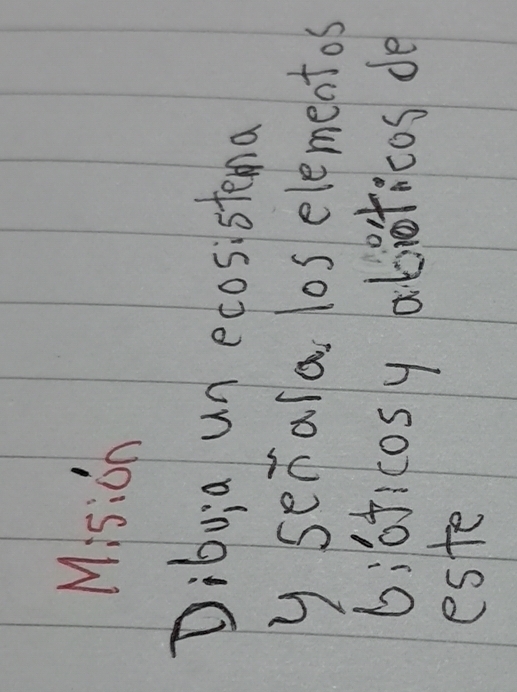 Misión
Dibuja un ecosistema
y señala los elementos
bióticos y abióticos de
este